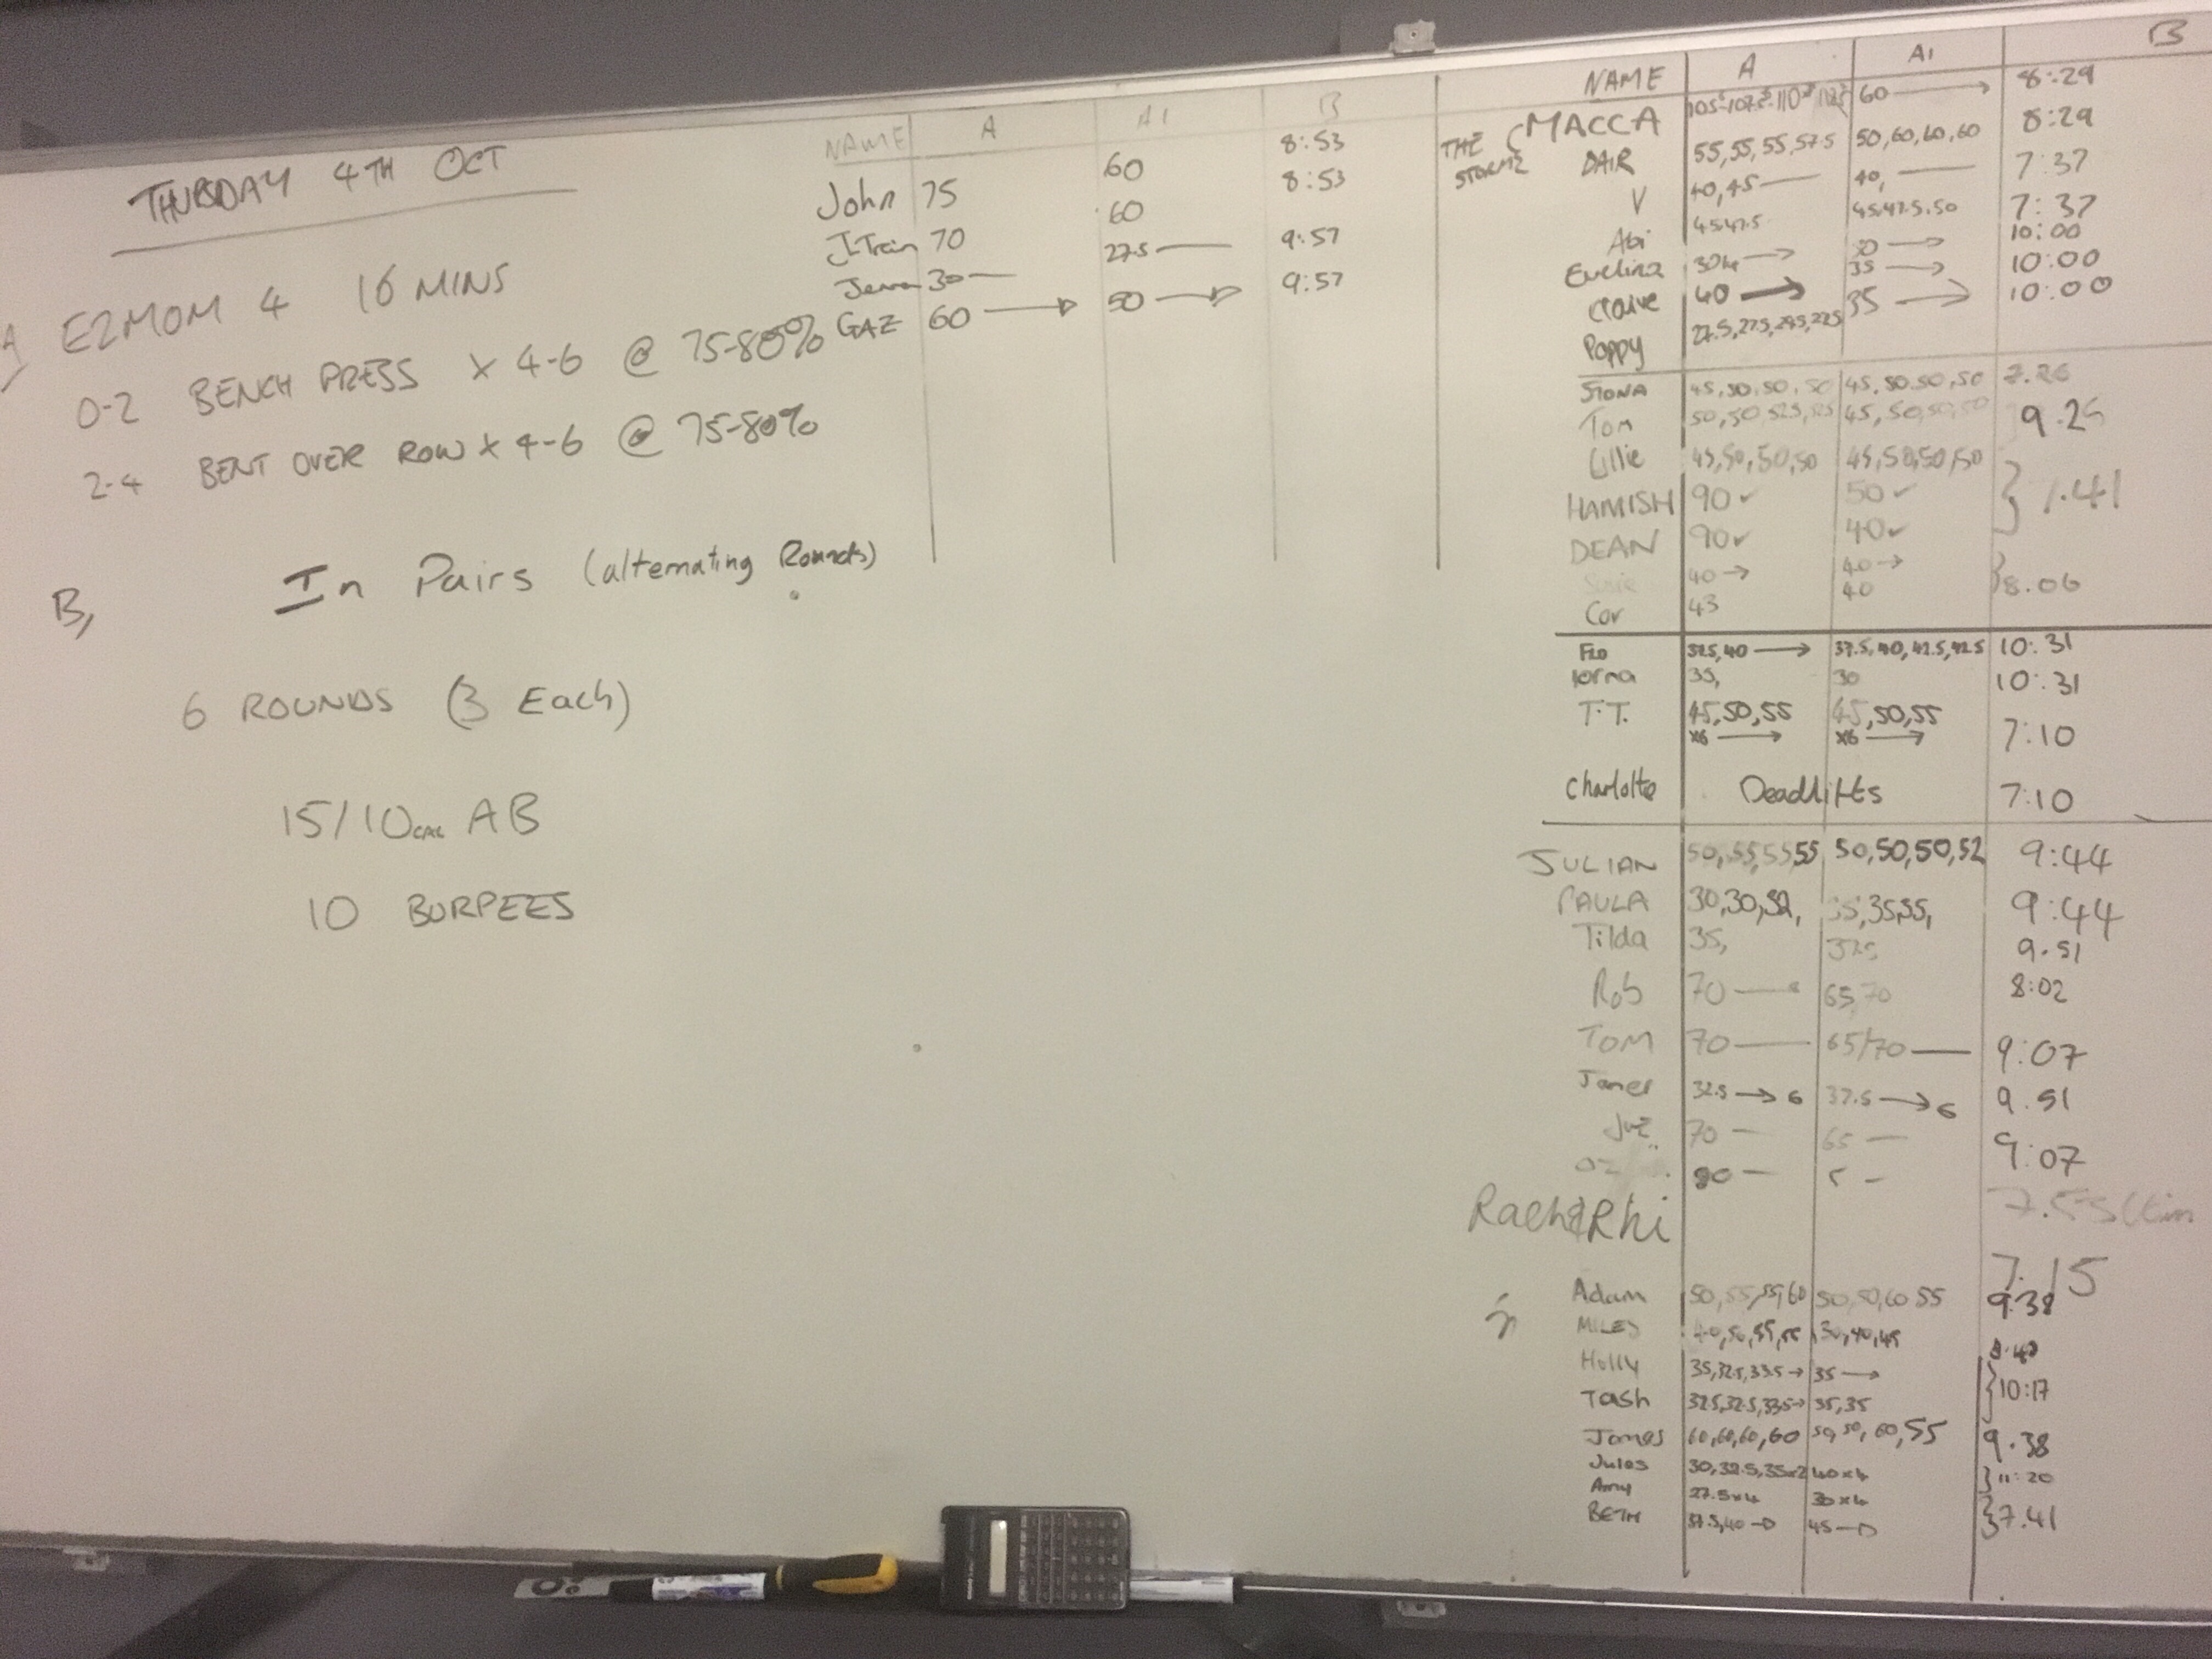 THURSDAY 4TH OCT
A E2MOM 4 16 MINS
0-2 BENCH PRESS X 4-6 @ 75-80%
2-4 BENT OVER ROW X 4-6 @ 75-80%
B, In Pairs (alternating Rounds)
6 ROUNDS (3 Each)
15/10 CAL AB
10 BURPEES
NAME A A1 B
John 75 60 8:53
J-Train 70 60 8:53
Jenna 30 — 27.5 — 9:57
GAZ 60 → 50 → 9:57
NAME A A1 B
THE
MACCA 60 → 8:29
DAIR 55, 55, 55, 57.5 50, 60, 60, 60 8:29
V 40, 45 — 40, — 7:37
Abi 45 47.5 45, 47.5, 50 7:37
Evelina → → 10:00
40 → 35 → 10:00
Poppy 35 → 10:00
45, 50, 50, 50 45, 50, 50, 50
Tom 45, 50, 50, 50
Lillie 45, 50, 50, 50 45, 50, 50, 50
HAMISH 90 ✓ 50 ✓
DEAN 90 ✓ 40 ✓
40 → 40 →
Cor 43 40 } 8.06
Flo 40 → 37.5, 40, 42.5, 42.5 10:31
lorna 35, 30 10:31
T.T. 45, 50, 55 45, 50, 55
x6 → x6 → 7:10
Charlotte Deadlifts 7:10
JULIAN 50, 55, 55 55 50, 50, 50, 52 9:44
PAULA 30, 30, 32, 35, 35 35, 9:44
Tilda 35, 37.5 9.51
Rob 70 — 65, 70 8:02
TOM 70 — 65/70 — 9:07
32.5 → 6 37.5 → 6 9.51
70 — 65 — 9:07
Rach & Rhi
7.15
Adam 50, 55, 55, 60 50, 50, 60 55 9:38
MILES 30, 40, 45
Holly 35 →
Tash 35, 35 } 10:17
James 60, 60, 60, 60 50, 50, 60, 55 9.38
Jules 30, 32.5, 35x2 40x4 } 11:20
Amy 27.5x4 30x4
BETH 37.5, 40 → 45 → } 7.41